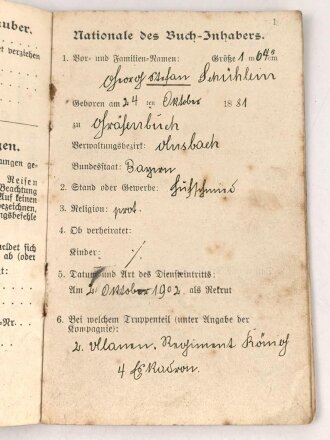 uber.
verziehen
1
Nationale des Buch-Inhabers.
1. Vor- und Familien-Namen: Größe 1 m 64 cm
Georg Stefan Schühlein
Geboren am 24 ten Oktober 1881
zu Gräfenbuch
Verwaltungsbezirk: Ansbach
Bundesstaat: Bayern
2. Stand oder Gewerbe: Hufschmied
3. Religion: prot.
4. Ob verheiratet:
Kinder: ./.
5. Datum und Art des Diensteintritts:
Am 2 Oktober 1902 als Rekrut
6. Bei welchem Truppenteil (unter Angabe der
Kompagnie):
2. Ulanen. Regiment König
4 Eskadron.
gen.
ungen ge-
Reisen
Beachtung
Auf keinen
bezeichnen,
ngsbefehle
meldet sich
ab (oder
Nr.